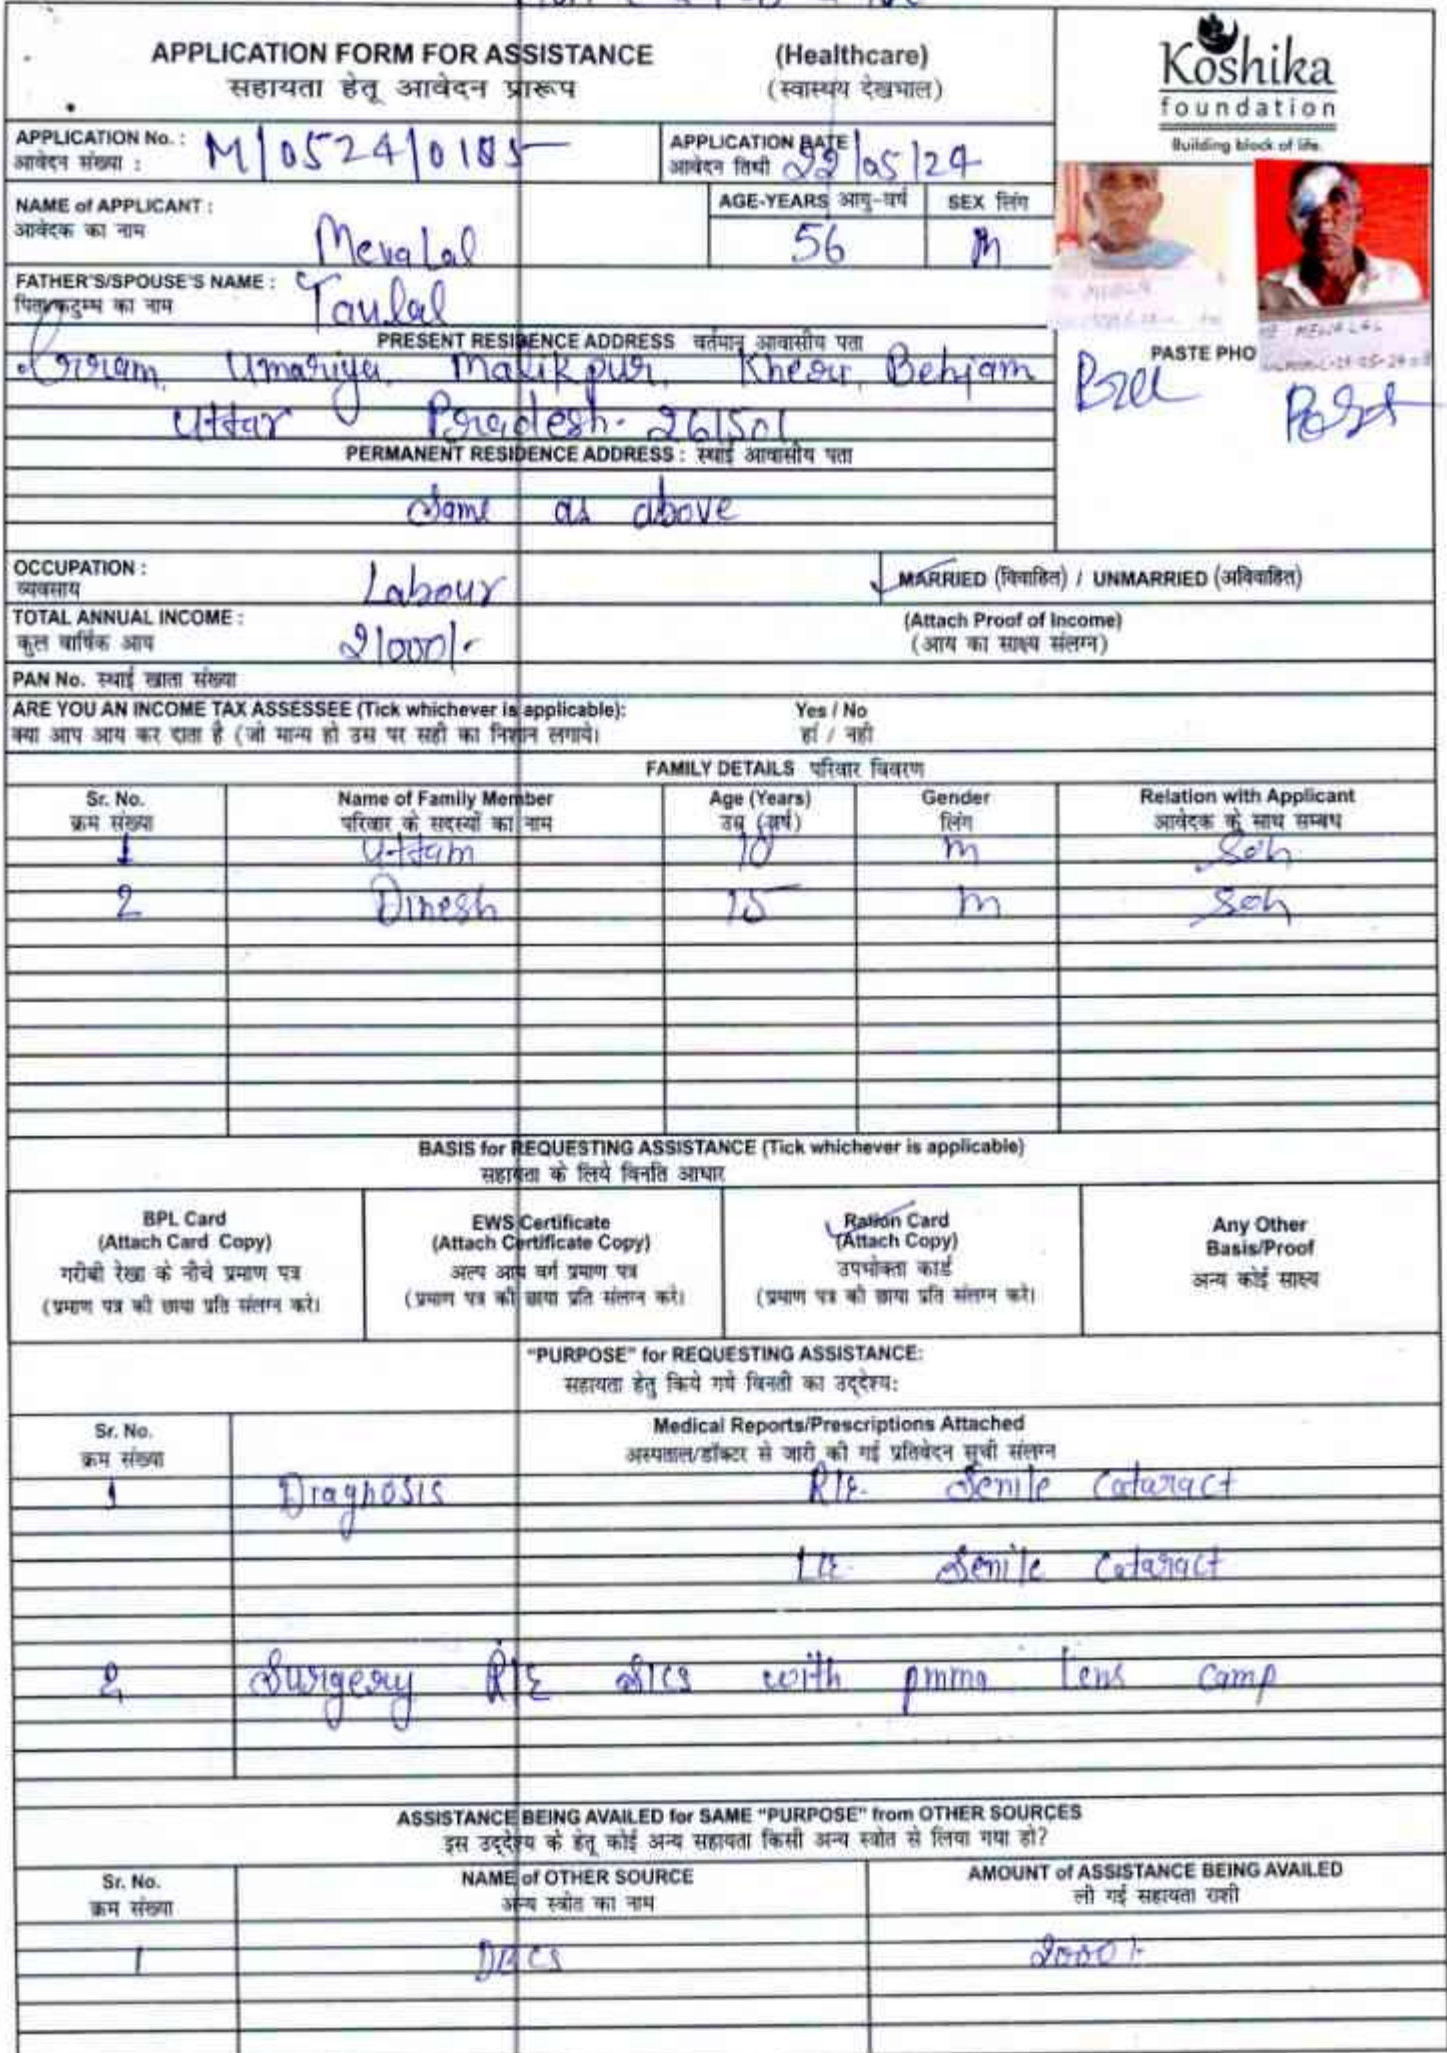 APPLICATION FORM FOR ASSISTANCE (Healthcare)
सहायता हेतू आवेदन प्रारूप (स्वास्थ्य देखभाल)
Koshika
foundation
Building block of life.
APPLICATION No. : M/0524/0185
आवेदन संख्या :
APPLICATION DATE 22/05/24
आवेदन तिथी
NAME of APPLICANT : MevaLal
आवेदक का नाम
AGE-YEARS आयु-वर्ष 56
SEX लिंग M
FATHER'S/SPOUSE'S NAME : Taulal
पिता/कुटुम्ब का नाम
PRESENT RESIDENCE ADDRESS वर्तमान आवासीय पता
Gram, Umariya, Malikpur, Kheri, Behjam
Uttar Pradesh- 261501
PERMANENT RESIDENCE ADDRESS : स्थाई आवासीय पता
Same as above
MEWALAL
PASTE PHO
Pre Post
OCCUPATION : Labour
व्यवसाय
MARRIED (विवाहित) / UNMARRIED (अविवाहित)
TOTAL ANNUAL INCOME : 21000/-
कुल वार्षिक आय
(Attach Proof of Income)
(आय का साक्ष्य संलग्न)
PAN No. स्थाई खाता संख्या
ARE YOU AN INCOME TAX ASSESSEE (Tick whichever is applicable): Yes / No
क्या आप आय कर दाता है (जो मान्य हो उस पर सही का निशान लगाये। हां / नही
FAMILY DETAILS परिवार विवरण
Sr. No. Name of Family Member Age (Years) Gender Relation with Applicant
क्रम संख्या परिवार के सदस्यों का नाम उम्र (वर्ष) लिंग आवेदक के साथ सम्बध
1 Uttam 10 m Son
2 Dinesh 15 m Son
BASIS for REQUESTING ASSISTANCE (Tick whichever is applicable)
सहायता के लिये विनति आधार
BPL Card
(Attach Card Copy)
गरीबी रेखा के नीचे प्रमाण पत्र
(प्रमाण पत्र की छाया प्रति संलग्न करे।
EWS Certificate
(Attach Certificate Copy)
अल्प आय वर्ग प्रमाण पत्र
(प्रमाण पत्र की छाया प्रति संलग्न करे।
Ration Card
(Attach Copy)
उपभोक्ता कार्ड
(प्रमाण पत्र की छाया प्रति संलग्न करे।
Any Other
Basis/Proof
अन्य कोई साक्ष्य
"PURPOSE" for REQUESTING ASSISTANCE:
सहायता हेतु किये गये विनती का उद्देश्य:
Sr. No. Medical Reports/Prescriptions Attached
क्रम संख्या अस्पताल/डॉक्टर से जारी की गई प्रतिवेदन सूची संलग्न
1 Diagnosis R/E- Senile Cataract
L/E- Senile Cataract
2 Surgery R/E SICS with pmma lens camp
ASSISTANCE BEING AVAILED for SAME "PURPOSE" from OTHER SOURCES
इस उद्देश्य के हेतू कोई अन्य सहायता किसी अन्य स्त्रोत से लिया गया हो?
Sr. No. NAME of OTHER SOURCE AMOUNT of ASSISTANCE BEING AVAILED
क्रम संख्या अन्य स्त्रोत का नाम ली गई सहायता राशी
1 DBCS 2000/-